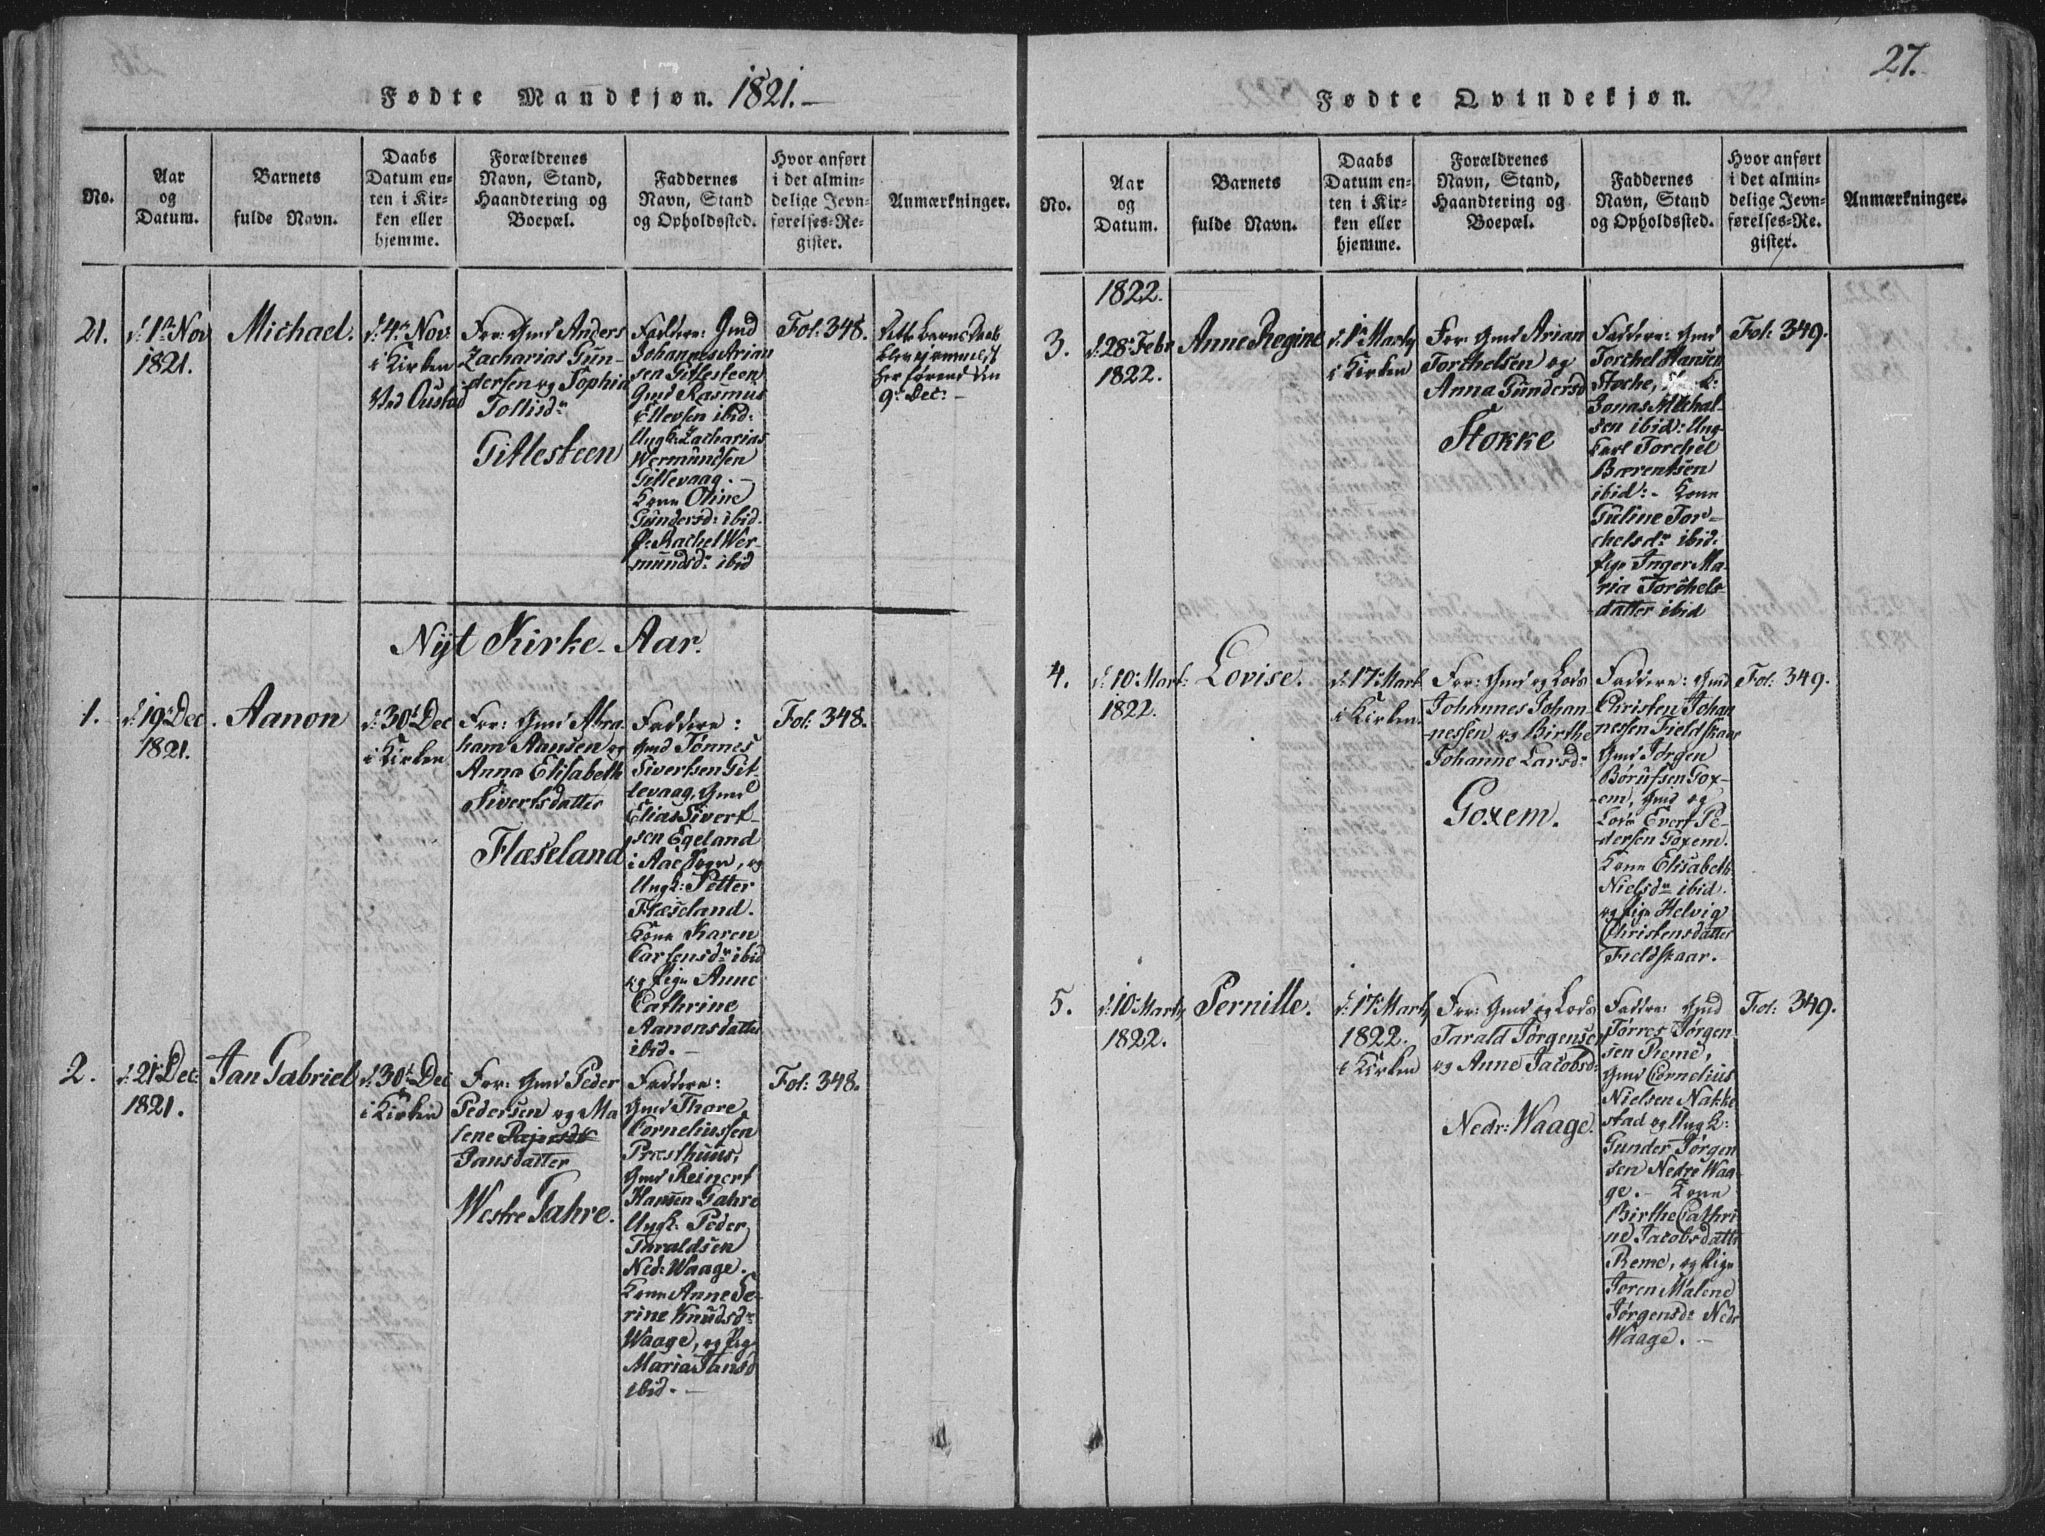 Fødte Mandkjøn. 1821.
No.
Aar
og
Datum.
Barnets
fulde Navn.
Daabs
Datum en-
ten i Kir-
ken eller
hjemme.
Forældrenes
Navn, Stand,
Haandtering og
Boepæl.
Faddernes
Navn, Stand
og Opholdssted.
Hvor anført
i det almin-
delige Jevn-
førelses-Re-
gister.
Anmærkninger.
21.
d: 1ste Nov
1821.
Michael.
d: 4de Nov
i Kirken
ved Oustad
For: Gmd Anders
Zacharias Gun-
dersen og Sophia
Tollisdr
Gitlesteen
Faddere: Gmd
Johannes Arian
sen Gitlesteen
Gmd Rasmus
Ellevsen ibid:
Ungk: Zacharias
Wermundsen
Gitlevaag. -
Kone Oline
Gundersd: ibid.
P: Rachel Wer-
mundsd: ibid
Fol: 348.
Dette Barns Daab
blev ej anmeldt
her førend den
9de Dec: -
Nyt Kirke-Aar.
1.
d: 19de Dec.
1821.
Aanon
d: 30te Dec
i Kirken
For: Gmd Abra-
ham Aansen og
Anna Elisabeth
Sivertsdatter
Flæseland
Faddere:
Gmd Tønnes
Sivertsen Git-
levaag, Gmd
Elias Sivert-
sen Egeland
i Aae Sogn, og
Ungk: Petter
Flæseland.
Kone Karen
Carlensdr ibid
og Pige Anne
Cathrine
Aanonsdatter
ibid. -
Fol: 348.
2.
d: 21de Dec:
1821.
Jan Gabriel
d: 30te Dec
i Kirken
For: Gmd Peder
Pedersen og Ma
lene
Jansdatter
Westre Jahre.
Faddere:
Gmd Thore
Corneliussen
Præsthuus,
Gmd Reinert
Hansen Jahre
Ungk: Peder
Taraldsen
Ned: Waage.
Kone Anne Se-
rine Knudsdr
Waage, og Pige
Maria Jansd
ibid. -
Fol: 348.
27.
Fødte Qvindekjøn.
No.
Aar
og
Datum.
Barnets
fulde Navn.
Daabs
Datum en-
ten i Kir-
ken eller
hjemme.
Forældrenes
Navn, Stand,
Haandtering og
Boepæl.
Faddernes
Navn, Stand
og Opholdssted.
Hvor anført
i det almin-
delige Jevn-
førelses-Re-
gister.
Anmærkninger.
1822.
3.
d: 28de Febr
1822.
Anne Regine
d: 1ste Marty
i Kirken
For: Gmd Arian
Torkelsen og
Anna Gundersd
Stokke
Faddere: Gmd
Torchel Hansen
Stoche,
Jonas Michal-
sen ibid: Ung
karl Torchel
Bærentsen
ibid: - Kone
Guline Tor-
chelsdr ibid.
Pige Inger Ma-
ria Torchels-
datter ibid
Fol: 349.
4.
d: 10 Mart:
1822.
Lovise.
d: 17 Mart
i Kirken.
For: Gmd og Lods
Johannes Johan-
nessen og Birthe
Johanne Larsdr
Goxem.
Faddere: Gmd
Christen Johan
nessen Fieldskaar
Gmd Jørgen
Børufsen Gox-
em, Gmd og
Lods Evert Pe-
dersen Goxem.
Kone Elisabeth
Nielsdr ibid.
og Pige Helvig
Christensdatter
Fieldskaar.
Fol: 349.
5.
d: 10 Marty
1822.
Pernille.
d: 17 Marty
1822.
i Kirken
For: Gmd og Lods
Tarald Jørgensen
og Anne Jacobsd:
Nedr: Waage.
Faddre: Gmd
Torres Jørgen-
sen Reme,
Gmd Cornelius
Nielsen Nakke
stad og Ungk:
Gunder Jørgen
sen Nedre Waa-
ge. - Kone
Birthe Cathri-
ne Jacobsdatter
Reme, og Pige
Joren Malene
Jørgensd: Nedr
Waage. -
Fol: 349.